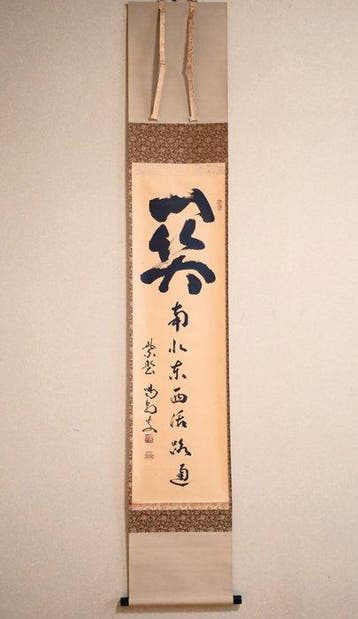 関
南北東西活路通